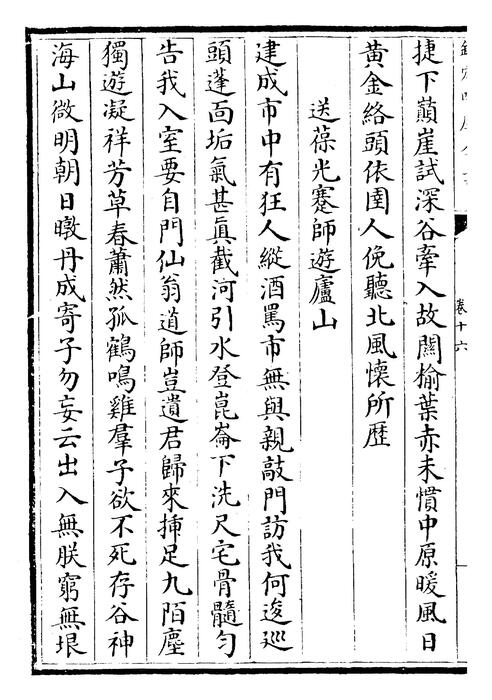 捷下巔崖試深谷牽入故關榆葉赤未慣中原暖風日
黃金絡頭依圉人俛聽北風懷所歷
送葆光蹇師遊廬山
建成市中有狂人縱酒罵市無與親敲門訪我何逡廵
頭蓬面垢氣甚真截河引水登崑崙下洗尺宅骨髓勻
告我入室要自門仙翁道師豈遺君歸來揷足九陌塵
獨遊凝祥芳草春蕭然孤鶴鳴雞羣子欲不死存谷神
海山微明朝日暾丹成寄子勿妄云出入無朕窮無垠
卷十六